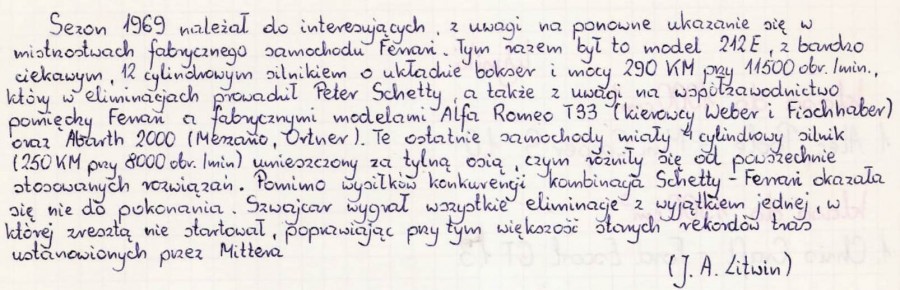 Sezon 1969 należał do interesujących, z uwagi na ponowne ukazanie się w
mistrzostwach fabrycznego samochodu Ferrari. Tym razem był to model 212E, z bardzo
ciekawym, 12 cylindrowym silnikiem o układzie bokser i mocy 290 KM przy 11500 obr./min.,
który w eliminacjach prowadził Peter Schetty, a także z uwagi na współzawodnictwo
pomiędzy Ferrari a fabrycznymi modelami Alfa Romeo T33 (kierowcy Weber i Fischhaber)
oraz Abarth 2000 (Merzario, Ortner). Te ostatnie samochody miały 4 cylindrowy silnik
(250 KM przy 8000 obr./min) umieszczony za tylną osią, czym różniły się od powszechnie
stosowanych rozwiązań. Pomimo wysiłków konkurencji kombinacja Schetty-Ferrari okazała
się nie do pokonania. Szwajcar wygrał wszystkie eliminacje z wyjątkiem jednej, w
której zresztą nie startował, poprawiając przy tym większość starych rekordów tras
ustanowionych przez Mittera
(J. A. Litwin)